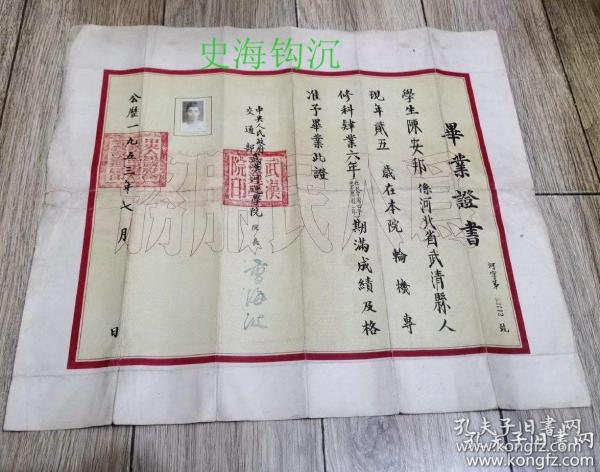 史海钩沉
畢業證書
河字第 號
學生陳安邦係河北省武清縣人
現年貳五歲在本院輪機專
修科肄業六年期滿成績及格
准予畢業此證
中央人民政府
交通部武漢河運學院院長
武漢
院印
公歷一九五三年七月 日
為人民服務
孔夫子旧书网
www.kongfz.com
孔夫子旧书网
www.kongfz.com